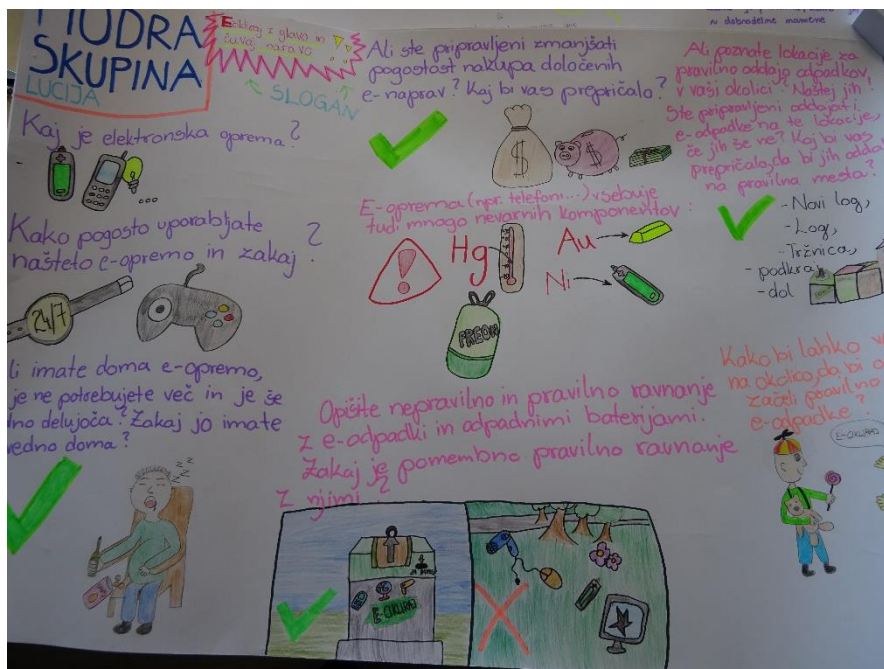 MODRA
SKUPINA
LUCIJA
E-cikliraj z glavo in
čuvaj naravo
SLOGAN
Kaj je elektronska oprema?
Kako pogosto uporabljate
našteto e-opremo in zakaj?
24/7
li imate doma e-opremo,
je ne potrebujete več in je še
dno delujoča? Zakaj jo imate
vedno doma?
Ali ste pripravljeni zmanjšati
pogostost nakupa določenih
e-naprav? Kaj bi vas prepričalo?
$
$
E-oprema (npr. telefoni...) vsebuje
tudi mnogo nevarnih komponentov:
!
Hg
Au
Ni
FREON
Opišite nepravilno in pravilno ravnanje
z e-odpadki in odpadnimi baterijami.
Zakaj je pomembno pravilno ravnanje
z njimi?
E-CIKLIRAJ
dobrodelne
Ali poznate lokacije za
pravilno oddajo odpadkov,
v vaši okolici? Naštej jih!
Ste pripravljeni oddajati
e-odpadke na te lokacije,
če jih še ne? Kaj bi vas
prepričalo, da bi jih oddal
na pravilna mesta?
- Novi log,
- Log,
- Tržnica,
- podkraj
- dol
Kako bi lahko v
na okolico, da bi o
začeli pravilno
e-odpadke?
E-CIKLIRAJ